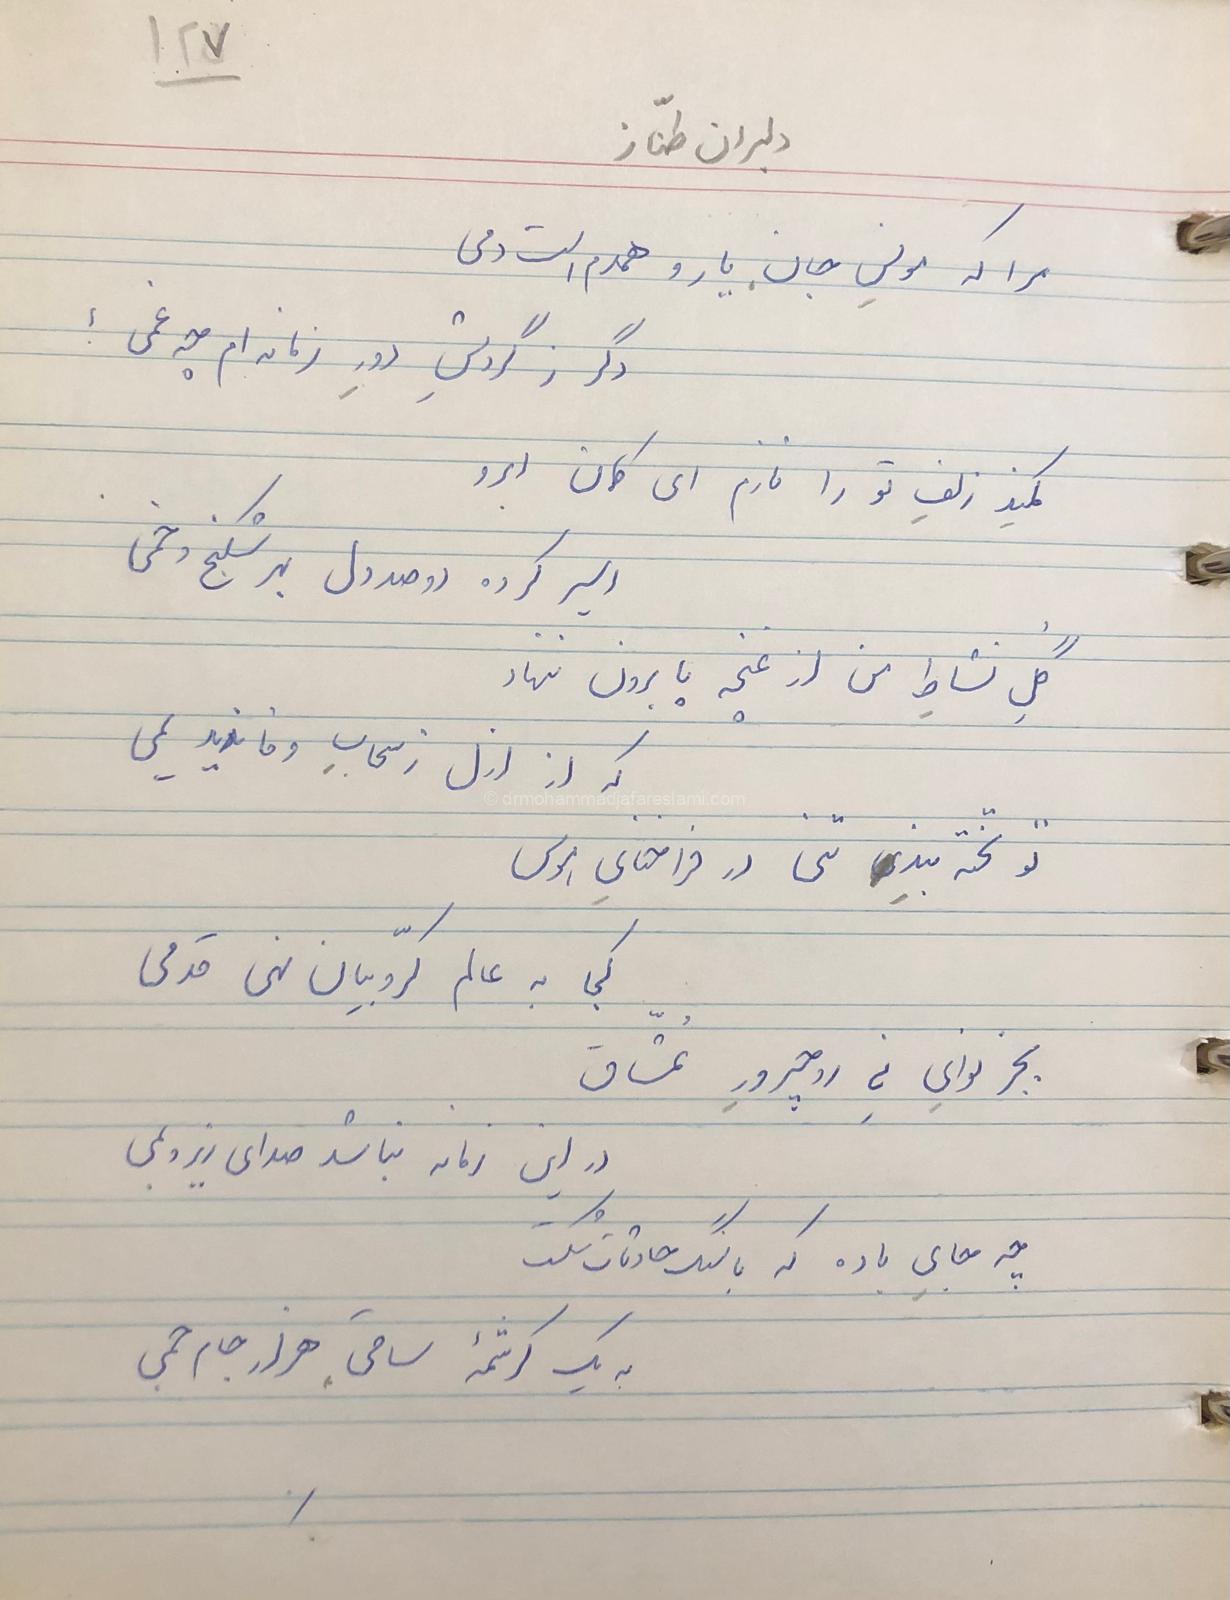 ۱۲۷
دلبران طنّاز
مرا که مونسِ جان، یار و همدم است دمی
دگر ز گردشِ دورِ زمانه ام چه غمی !
کمندِ زلفِ تو را نازم ای کمان ابرو
اسیر کرده دو صد دل بهر شکنج و خمی
گُلِ نشاطِ من از غنچه پا برون ننهاد
که از ازل ز سحابِ وفا ندید نمی
© drmohammadjafareslami.com
تو تخته بندِ تنی در فراخنایِ هوس
کجا به عالم کرّوبیان نهی قدمی
بجز نوایِ نیِ روحپرورِ عُشّاق
در این زمانه نباشد صدای زیر و بمی
چه جایِ باده که با سنگ حادثات شکست
به یک کرشمهٔ ساقی، هزار جام جمی